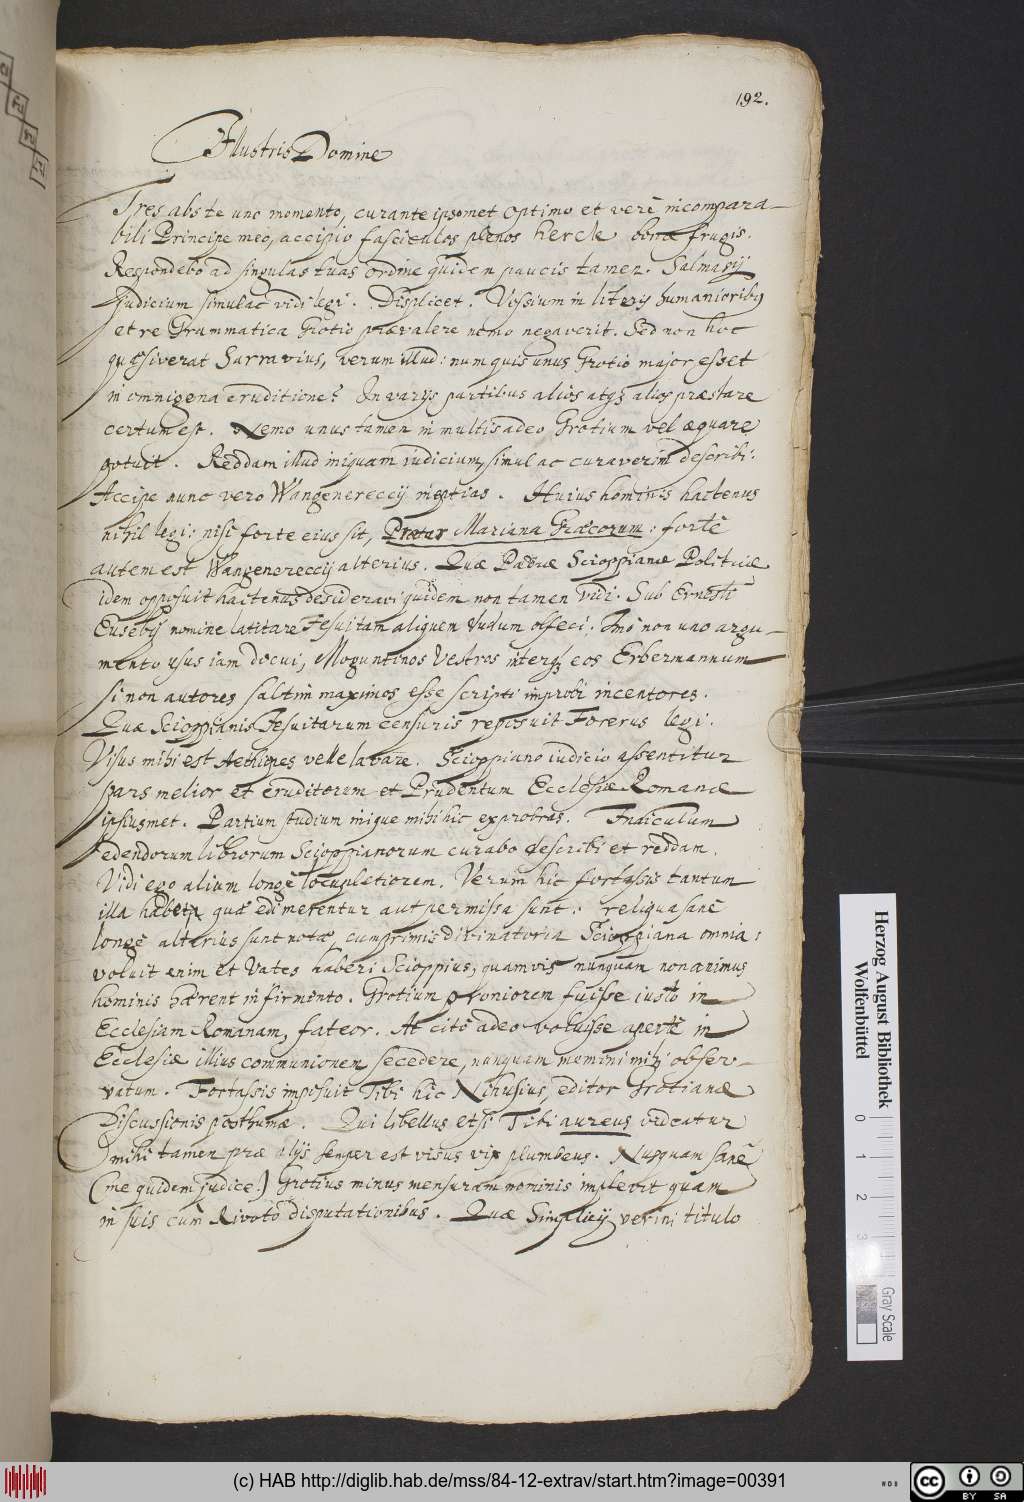 192.
Illustris Domine
Tres abs te uno momento, curante ipsomet optimo et verè incompara-
bili Principe meo, accipio fasciculos plenos hercle bonæ frugis.
Respondebo ad singulas tuas ordine quidem paucis tamen. Salmasij
Judicium simulac vidi legi. Displicet. Vossium in literis humanioribus
et re Grammatica Grotio prævalere nemo negaverit. Sed non hoc
quæsiverat Sarravius, verum illud: num quis unus Grotio major esset
in omnigena eruditione? In varijs partibus alios atq; alios præstare
certum est. Nemo unus tamen in multis adeo Grotium vel æquare
potuit. Reddam illud iniquam iudicium, simul ac curaverim describi.
Accipe nunc vero Wangenereccij ineptias. Huius hominis hactenus
nihil legi: nisi forte eius sit, Prætur Mariana Græcorum: fortè
autem est Wangenereccij alterius. Quæ Pædiæ Scioppianæ Politicæ
idem opposuit hactenus desideravi quidem non tamen vidi. Sub Ernesti
Eusebij nomine latitare Jesuitam aliquem dudum olfeci. Imò non uno argu-
mento usus iam docui, Moguntinos Vestros interq; eos Erbermannum
si non autores saltim maximos esse scripti improbi incentores.
Quæ Scioppianis Jesuitarum censuris reposuit Forerus legi.
Visus mihi est Aethiopes velle lavare. Scioppiano iudicio assentitur
pars melior et eruditorum et Prudentum Ecclesiæ Romanæ
ipsiusmet. Partium studium inique mihi hic exprobras. Indiculum
edendorum librorum Scioppianorum curabo describi et reddam.
Vidi ego alium longè locupletiorem. Verum hic fortassis tantum
illa habet, quæ edi merentur aut permissa sunt: reliqua sanè
longè alterius sunt notæ, cumprimis divinatoria Scioppiana omnia:
voluit enim et Vates haberi Scioppius, quamvis nunquam non animus
hominis hæreret in firmento. Grotium proniorem fuisse iusto in
Ecclesiam Romanam, fateor. At citò adeo voluisse apertè in
Ecclesiæ illius communionem secedere, nunquam memini mihi obser-
vatum. Fortassis imposuit Tibi hic Nihusius, editor Grotianæ
Discussionis posthumæ. Qui libellus etsi Tibi aureus videatur
mihi tamen præ alijs semper est visus vix plumbeus. Nusquam sanè
(me quidem judice) Grotius minus mensuram nominis implevit quam
in suis cum Riveto disputationibus. Quæ Simplicij verini titulo
Herzog August Bibliothek
Wolfenbüttel
0 1 2 3
Gray Scale
(c) HAB http://diglib.hab.de/mss/84-12-extrav/start.htm?image=00391
cc BY SA